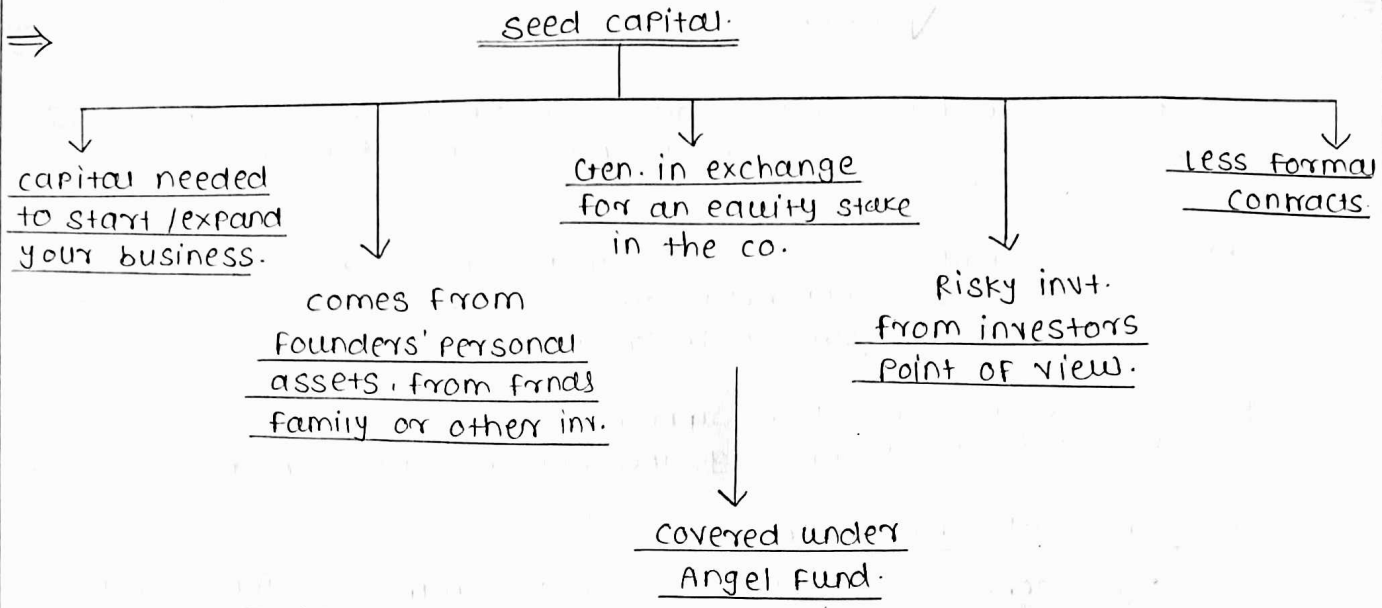 ⇒ seed capital.
capital needed
to start /expand
your business.
comes from
Founders' personal
assets, from frnds
family or other inv.
Gen. in exchange
for an equity stake
in the co.
Risky invt.
from investors
point of view.
less formal
contracts.
covered under
Angel Fund.